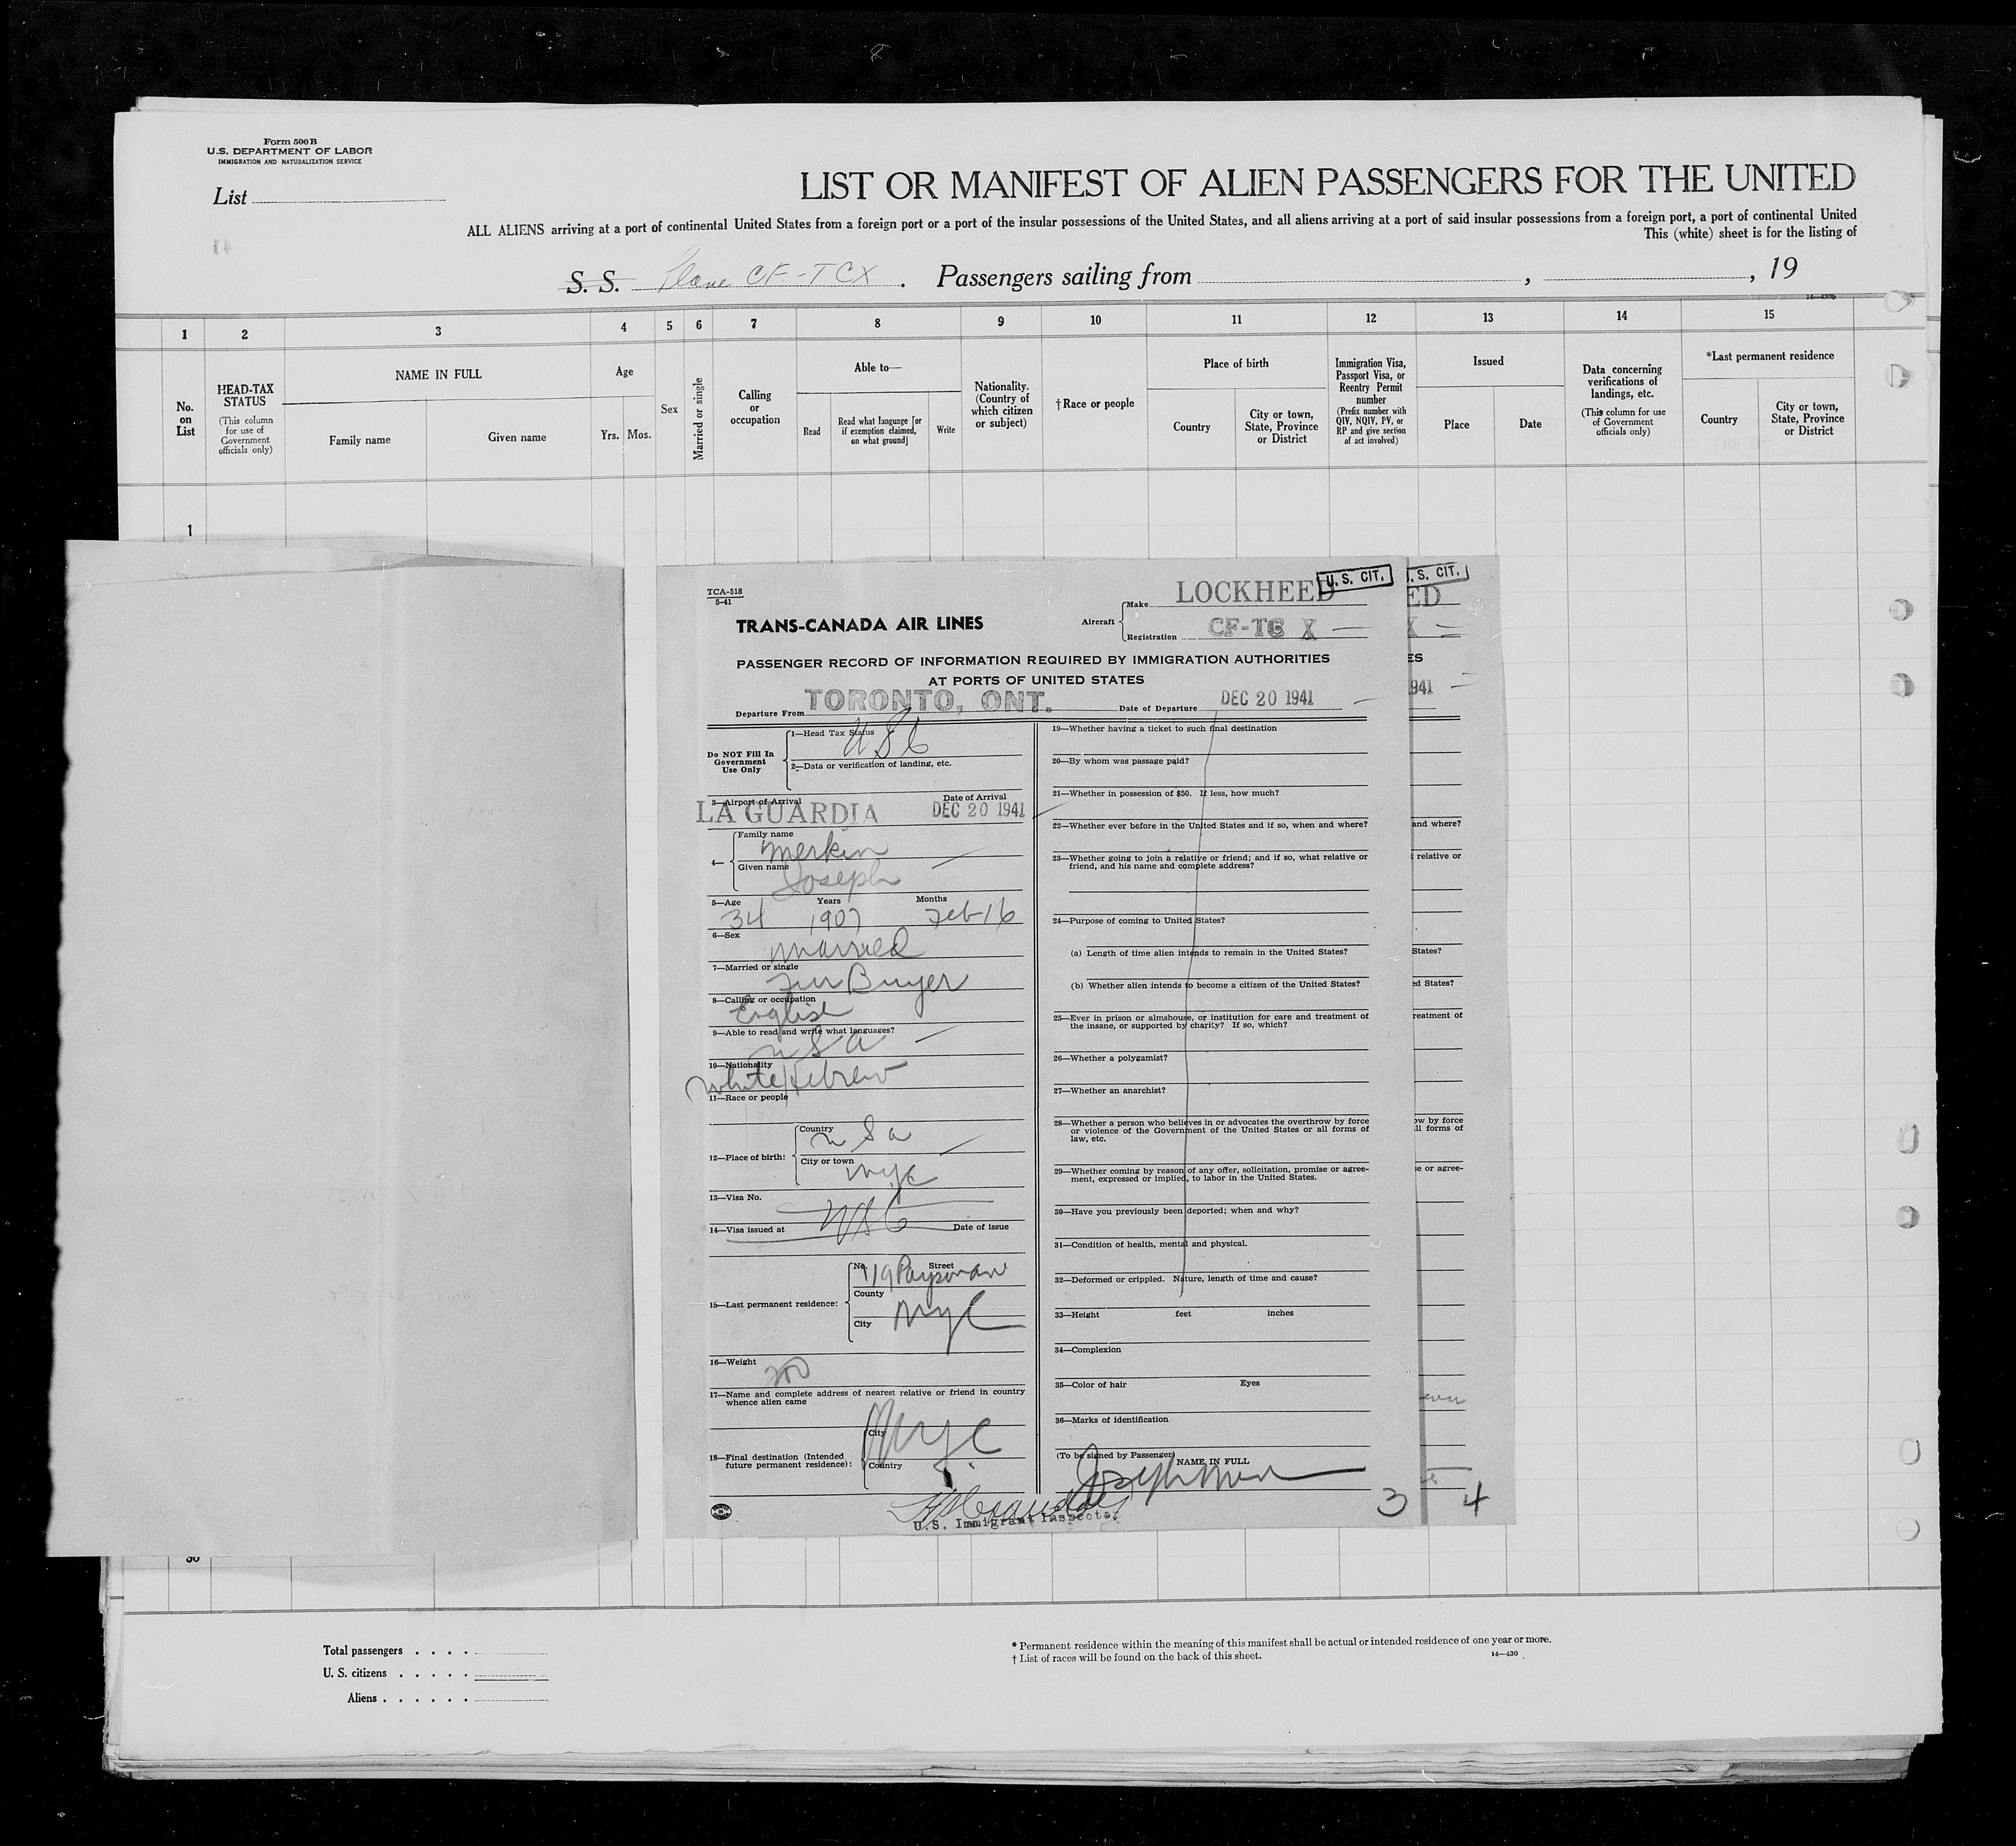 Form 500 B
U.S. DEPARTMENT OF LABOR
IMMIGRATION AND NATURALIZATION SERVICE
List
LIST OR MANIFEST OF ALIEN PASSENGERS FOR THE UNITED
ALL ALIENS arriving at a port of continental United States from a foreign port or a port of the insular possessions of the United States, and all aliens arriving at a port of said insular possessions from a foreign port, a port of continental United
This (white) sheet is for the listing of
S. S. Plane CF-TCX. Passengers sailing from , , 19
14—430b
1 2 3 4 5 6 7 8 9 10 11 12 13 14 15
No. on List
HEAD-TAX STATUS
(This column for use of Government officials only)
NAME IN FULL
Family name
Given name
Age
Yrs. Mos.
Sex
Married or single
Calling or occupation
Able to—
Read
Read what language [or if exemption claimed, on what ground]
Write
Nationality. (Country of which citizen or subject)
†Race or people
Place of birth
Country
City or town, State, Province or District
Immigration Visa, Passport Visa, or Reentry Permit number
(Prefix number with QIV, NQIV, PV, or RP and give section of act involved)
Issued
Place
Date
Data concerning verifications of landings, etc.
(This column for use of Government officials only)
*Last permanent residence
Country
City or town, State, Province or District
1
TCA-518
5-41
TRANS-CANADA AIR LINES
Aircraft
Make LOCKHEED
U. S. CIT.
Registration CF-TC X
PASSENGER RECORD OF INFORMATION REQUIRED BY IMMIGRATION AUTHORITIES
AT PORTS OF UNITED STATES
Departure From TORONTO, ONT. Date of Departure DEC 20 1941
Do NOT Fill In Government Use Only
1—Head Tax Status USC
2—Data or verification of landing, etc.
3—Airport of Arrival Date of Arrival
LA GUARDIA DEC 20 1941
4—
Family name
Merkin
Given name
Joseph
5—Age Years Months
34 1907 Feb 16
6—Sex
Married
7—Married or single
Fur Buyer
8—Calling or occupation
English
9—Able to read and write what languages?
USA
10—Nationality
White Hebrew
11—Race or people
12—Place of birth:
Country
USA
City or town
NYC
13—Visa No.
USC
14—Visa issued at Date of issue
15—Last permanent residence:
No. Street
119 Payson Ave
County
NYC
City
16—Weight
200
17—Name and complete address of nearest relative or friend in country
whence alien came
NYC
18—Final destination (Intended
future permanent residence):
City
Country
19—Whether having a ticket to such final destination
20—By whom was passage paid?
21—Whether in possession of $50. If less, how much?
22—Whether ever before in the United States and if so, when and where?
23—Whether going to join a relative or friend; and if so, what relative or
friend, and his name and complete address?
24—Purpose of coming to United States?
(a) Length of time alien intends to remain in the United States?
(b) Whether alien intends to become a citizen of the United States?
25—Ever in prison or almshouse, or institution for care and treatment of
the insane, or supported by charity? If so, which?
26—Whether a polygamist?
27—Whether an anarchist?
28—Whether a person who believes in or advocates the overthrow by force
or violence of the Government of the United States or all forms of
law, etc.
29—Whether coming by reason of any offer, solicitation, promise or agree-
ment, expressed or implied, to labor in the United States.
30—Have you previously been deported; when and why?
31—Condition of health, mental and physical.
32—Deformed or crippled. Nature, length of time and cause?
33—Height feet inches
34—Complexion
35—Color of hair Eyes
36—Marks of identification
(To be signed by Passenger)
NAME IN FULL
Joseph
U.S. Immigrant Inspector
3
. S. CIT.
ED
X
ES
941
and where?
relative or
States?
ed States?
reatment of
ow by force
ll forms of
se or agree-
4
30
Total passengers . . . .
U. S. citizens . . . . .
Aliens . . . . . .
* Permanent residence within the meaning of this manifest shall be actual or intended residence of one year or more.
† List of races will be found on the back of this sheet.
14—430